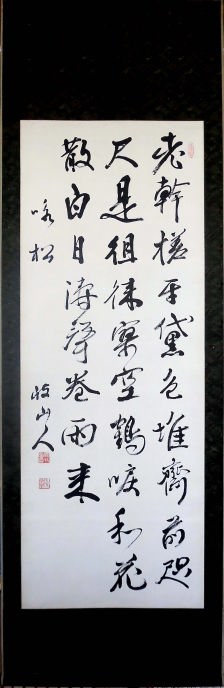 老幹槎牙黛色堆齋前咫
尺是徂徠寥空鶴唳和花
散白日濤聲卷雨来
咏松
山人